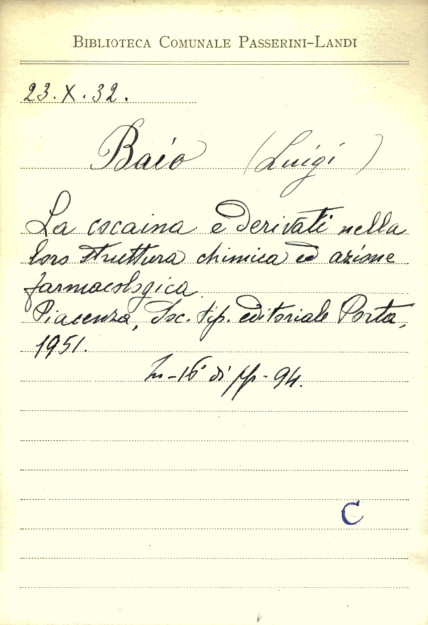 BIBLIOTECA COMUNALE PASSERINI-LANDI
23.X.32.
Baio (Luigi)
La cocaina e derivati nella
loro struttura chimica ed azione
farmacologica.
Piacenza, Soc. tip. editoriale Porta,
1951.
In-16° di pp. 94.
C